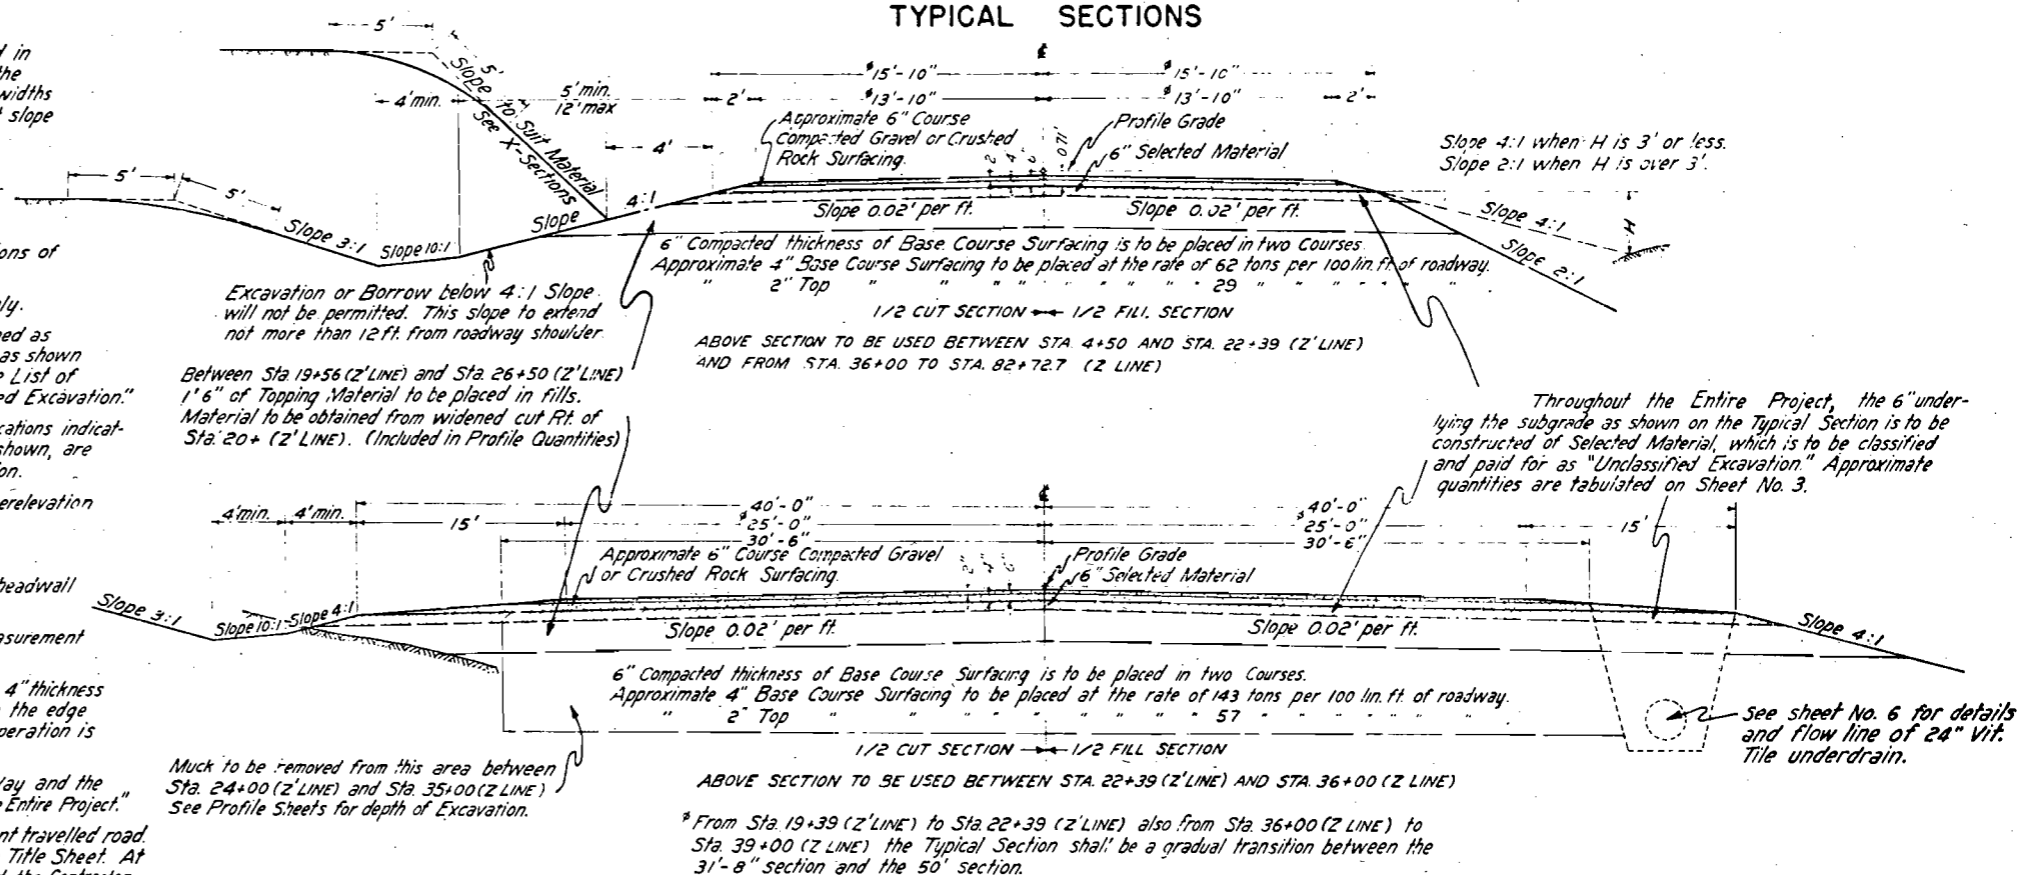 TYPICAL SECTIONS
in
the
widths
slope
ons of
ly.
ned as
as shown
List of
ed Excavation."
cations indicat-
shown, are
on.
erelevation
headwall
surement
4" thickness
the edge
peration is
way and the
Entire Project."
nt travelled road.
Title Sheet. At
5'
5'
Slope to Suit Material
See X-Sections
4' min.
5' min.
12' max
4'
2'
ø15'-10"
ø15'-10"
ø13'-10"
ø13'-10"
2'
Approximate 6" Course
Compacted Gravel or Crushed
Rock Surfacing.
.071'
Profile Grade
6" Selected Material
Slope 4:1 when H is 3' or less.
Slope 2:1 when H is over 3'.
5'
5'
Slope 3:1
Slope 10:1
Slope
4:1
Slope 0.02' per ft.
Slope 0.02' per ft.
Slope 4:1
Slope 2:1
H
6" Compacted thickness of Base Course Surfacing is to be placed in two Courses.
Approximate 4" Base Course Surfacing to be placed at the rate of 62 tons per 100 lin. ft. of roadway.
" 2" Top " " " " " " " " 29 " " " " " "
1/2 CUT SECTION 1/2 FILL SECTION
ABOVE SECTION TO BE USED BETWEEN STA. 4+50 AND STA. 22+39 (Z'LINE)
AND FROM STA. 36+00 TO STA. 82+72.7 (Z LINE)
Excavation or Borrow below 4:1 Slope
will not be permitted. This slope to extend
not more than 12 ft. from roadway shoulder.
Between Sta. 19+56 (Z'LINE) and Sta. 26+50 (Z'LINE)
1'6" of Topping Material to be placed in fills.
Material to be obtained from widened cut Rt. of
Sta. 20+ (Z'LINE). (Included in Profile Quantities)
Throughout the Entire Project, the 6" under-
lying the subgrade as shown on the Typical Section is to be
constructed of Selected Material, which is to be classified
and paid for as "Unclassified Excavation." Approximate
quantities are tabulated on Sheet No. 3.
4'min.
4'min.
15'
40'-0"
ø25'-0"
30'-6"
40'-0"
ø25'-0"
30'-6"
15'
Approximate 6" Course Compacted Gravel
or Crushed Rock Surfacing.
2"
4"
6"
Profile Grade
6" Selected Material
Slope 3:1
Slope 10:1
Slope 4:1
Slope 0.02' per ft.
Slope 0.02' per ft.
Slope 4:1
6" Compacted thickness of Base Course Surfacing is to be placed in two Courses.
Approximate 4" Base Course Surfacing to be placed at the rate of 143 tons per 100 lin. ft. of roadway.
" 2" Top " " " " " " " " 57 " " " " " "
1/2 CUT SECTION 1/2 FILL SECTION
ABOVE SECTION TO BE USED BETWEEN STA. 22+39 (Z'LINE) AND STA. 36+00 (Z LINE)
See sheet No. 6 for details
and flow line of 24" Vit.
Tile underdrain.
Muck to be removed from this area between
Sta. 24+00 (Z'LINE) and Sta. 35+00 (Z LINE)
See Profile Sheets for depth of Excavation.
ø From Sta. 19+39 (Z'LINE) to Sta. 22+39 (Z'LINE) also from Sta. 36+00 (Z LINE) to
Sta. 39+00 (Z LINE) the Typical Section shall be a gradual transition between the
31'-8" section and the 50' section.